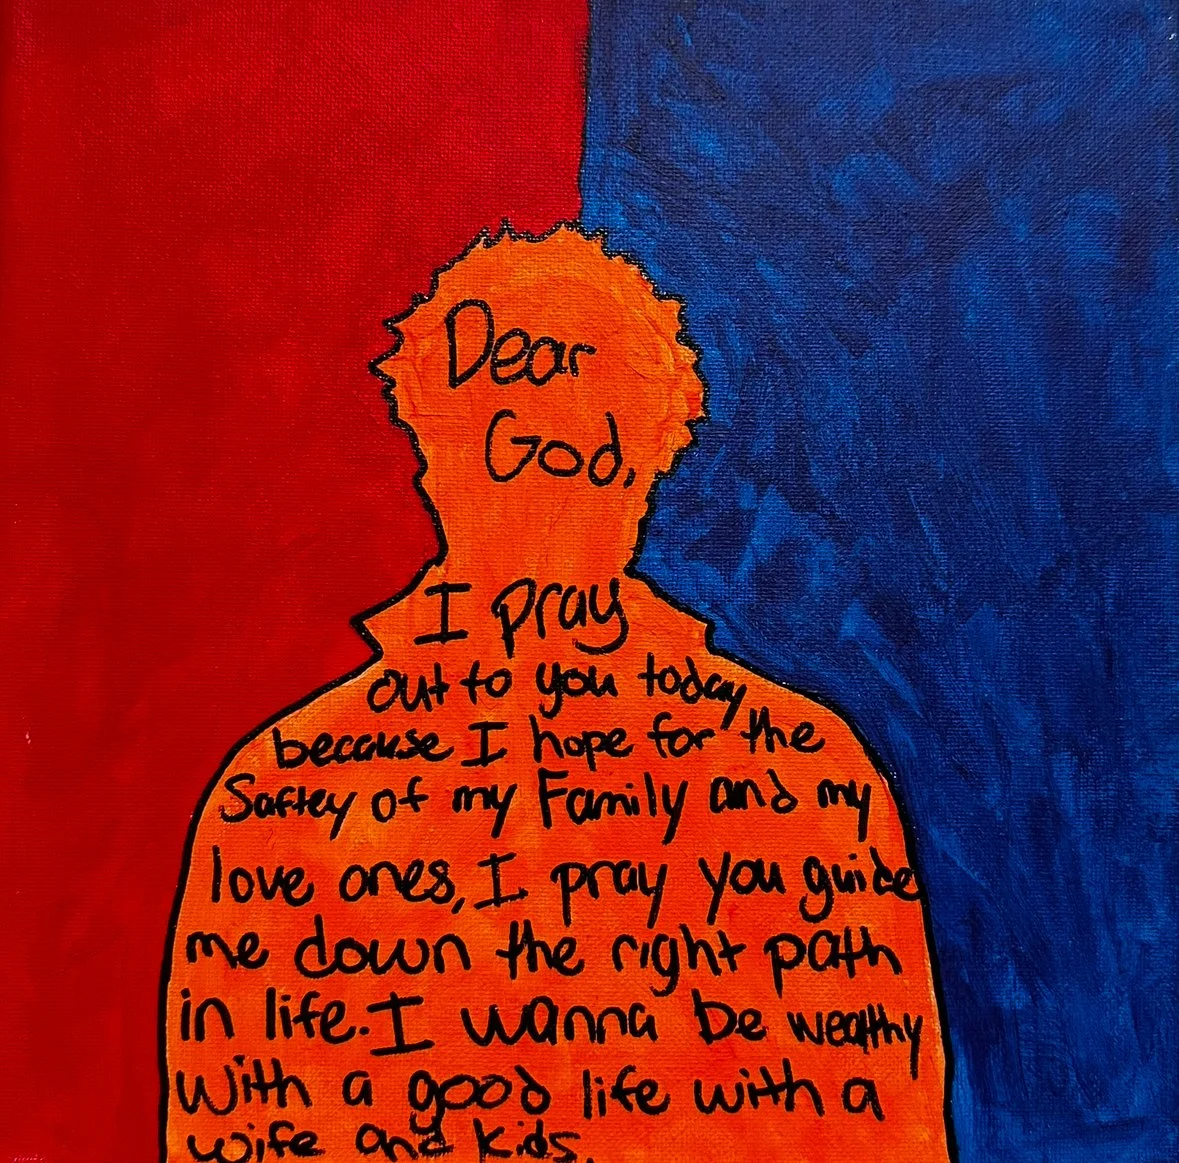 Dear
God,
I pray
out to you today
because I hope for the
Saftey of my Family and my
love ones, I pray you guide
me down the right path
in life. I wanna be wealthy
With a good life with a
wife and kids.